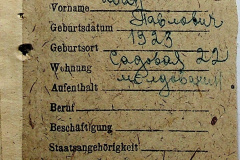 Vorname Павлович
Geburtsdatum 1923
Geburtsort Садовая 22
Wohnung
Aufenthalt
Beruf
Beschäftigung
Staatsangehörigkeit